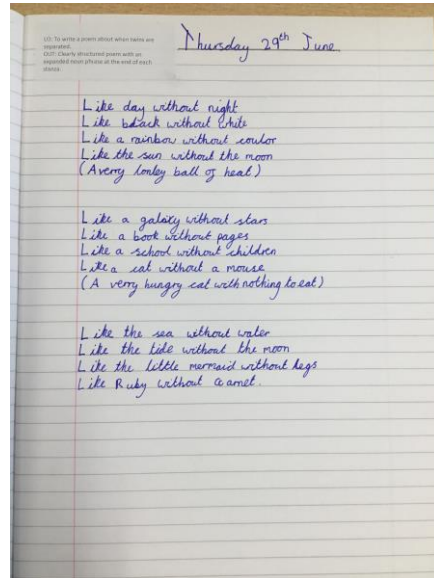 LO: To write a poem about when twins are
separated.
OUT: Clearly structured poem with an
expanded noun phrase at the end of each
stanza.
Thursday 29th June
Like day without night
Like black without white
Like a rainbow without coulor
Like the sun without the moon
(A verry lonley ball of heat)
Like a galaxy without stars
Like a book without pages
Like a school without children
Like a cat without a mouse
(A verry hungry cat with nothing to eat)
Like the sea without water
Like the tide without the moon
Like the little mermaid without legs
Like Ruby without Garnet.